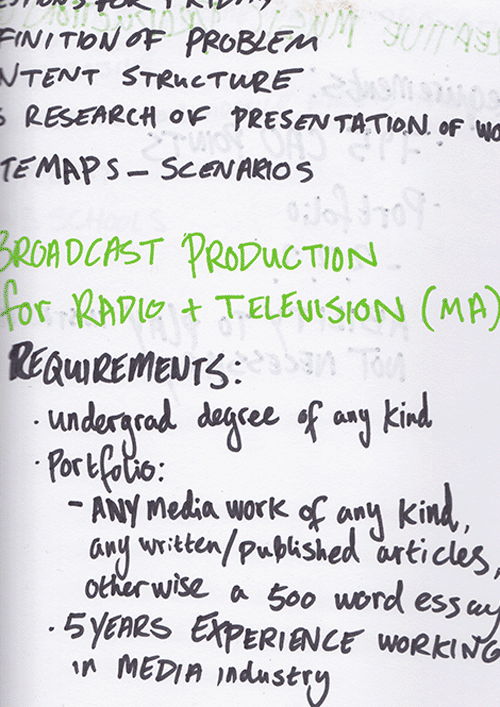 FOR FRIDAY
FINITION OF PROBLEM
NTENT STRUCTURE
S RESEARCH OF PRESENTATION. OF WO
TEMAPS – SCENARIOS
BROADCAST PRODUCTION
for RADIO + TELEVISION (MA)
REQUIREMENTS:
· undergrad degree of any kind
· Portfolio:
– ANY media work of any kind,
any written/published articles,
otherwise a 500 word essay
· 5 YEARS EXPERIENCE WORKING
in MEDIA industry